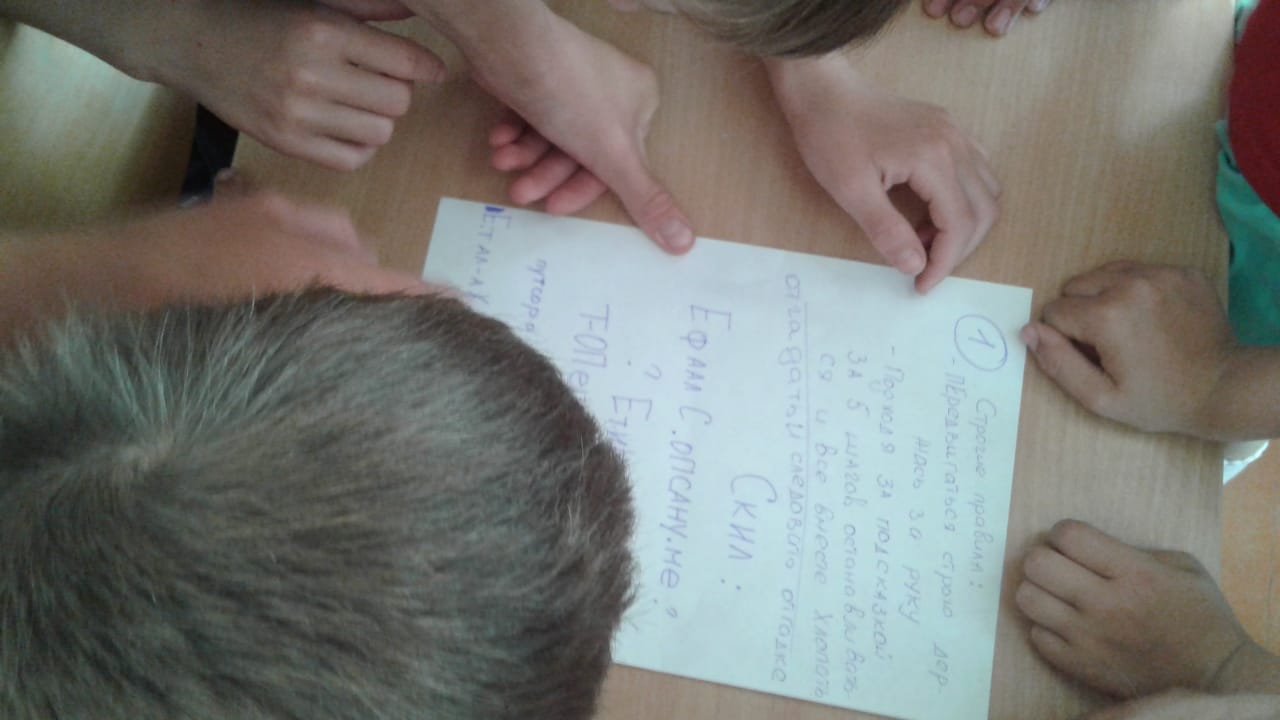 1 Строгие правила:
- Передвигаться строго дер-
жась за руку
- Подходя за подсказкой
за 5 шагов останавливать
ся и все вместе хлопать
отгадать и следовать отгадке
Скил:
Ефаал с.опсану.не,
? Ети
Т-опе
Етал-ах